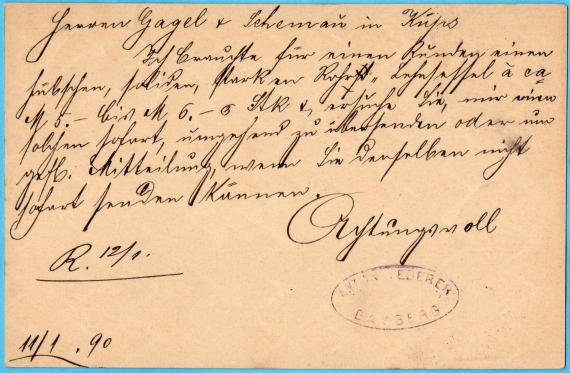 Herren Gagel & Schemau in Küps
Ich brauchte für einen Kunden einen
hübschen, soliden, starken Rohr Lehnsessel à ca
M 5.– bis M 6.– Stk &, ersuche Sie, mir einen
solchen sofort, umgehend zu übersenden oder um
gefl. Mitteilung, wenn Sie denselben nicht
sofort senden können.
Achtungsvoll
R. 12/1.
LEDERER
BAMBERG
11/1. 90